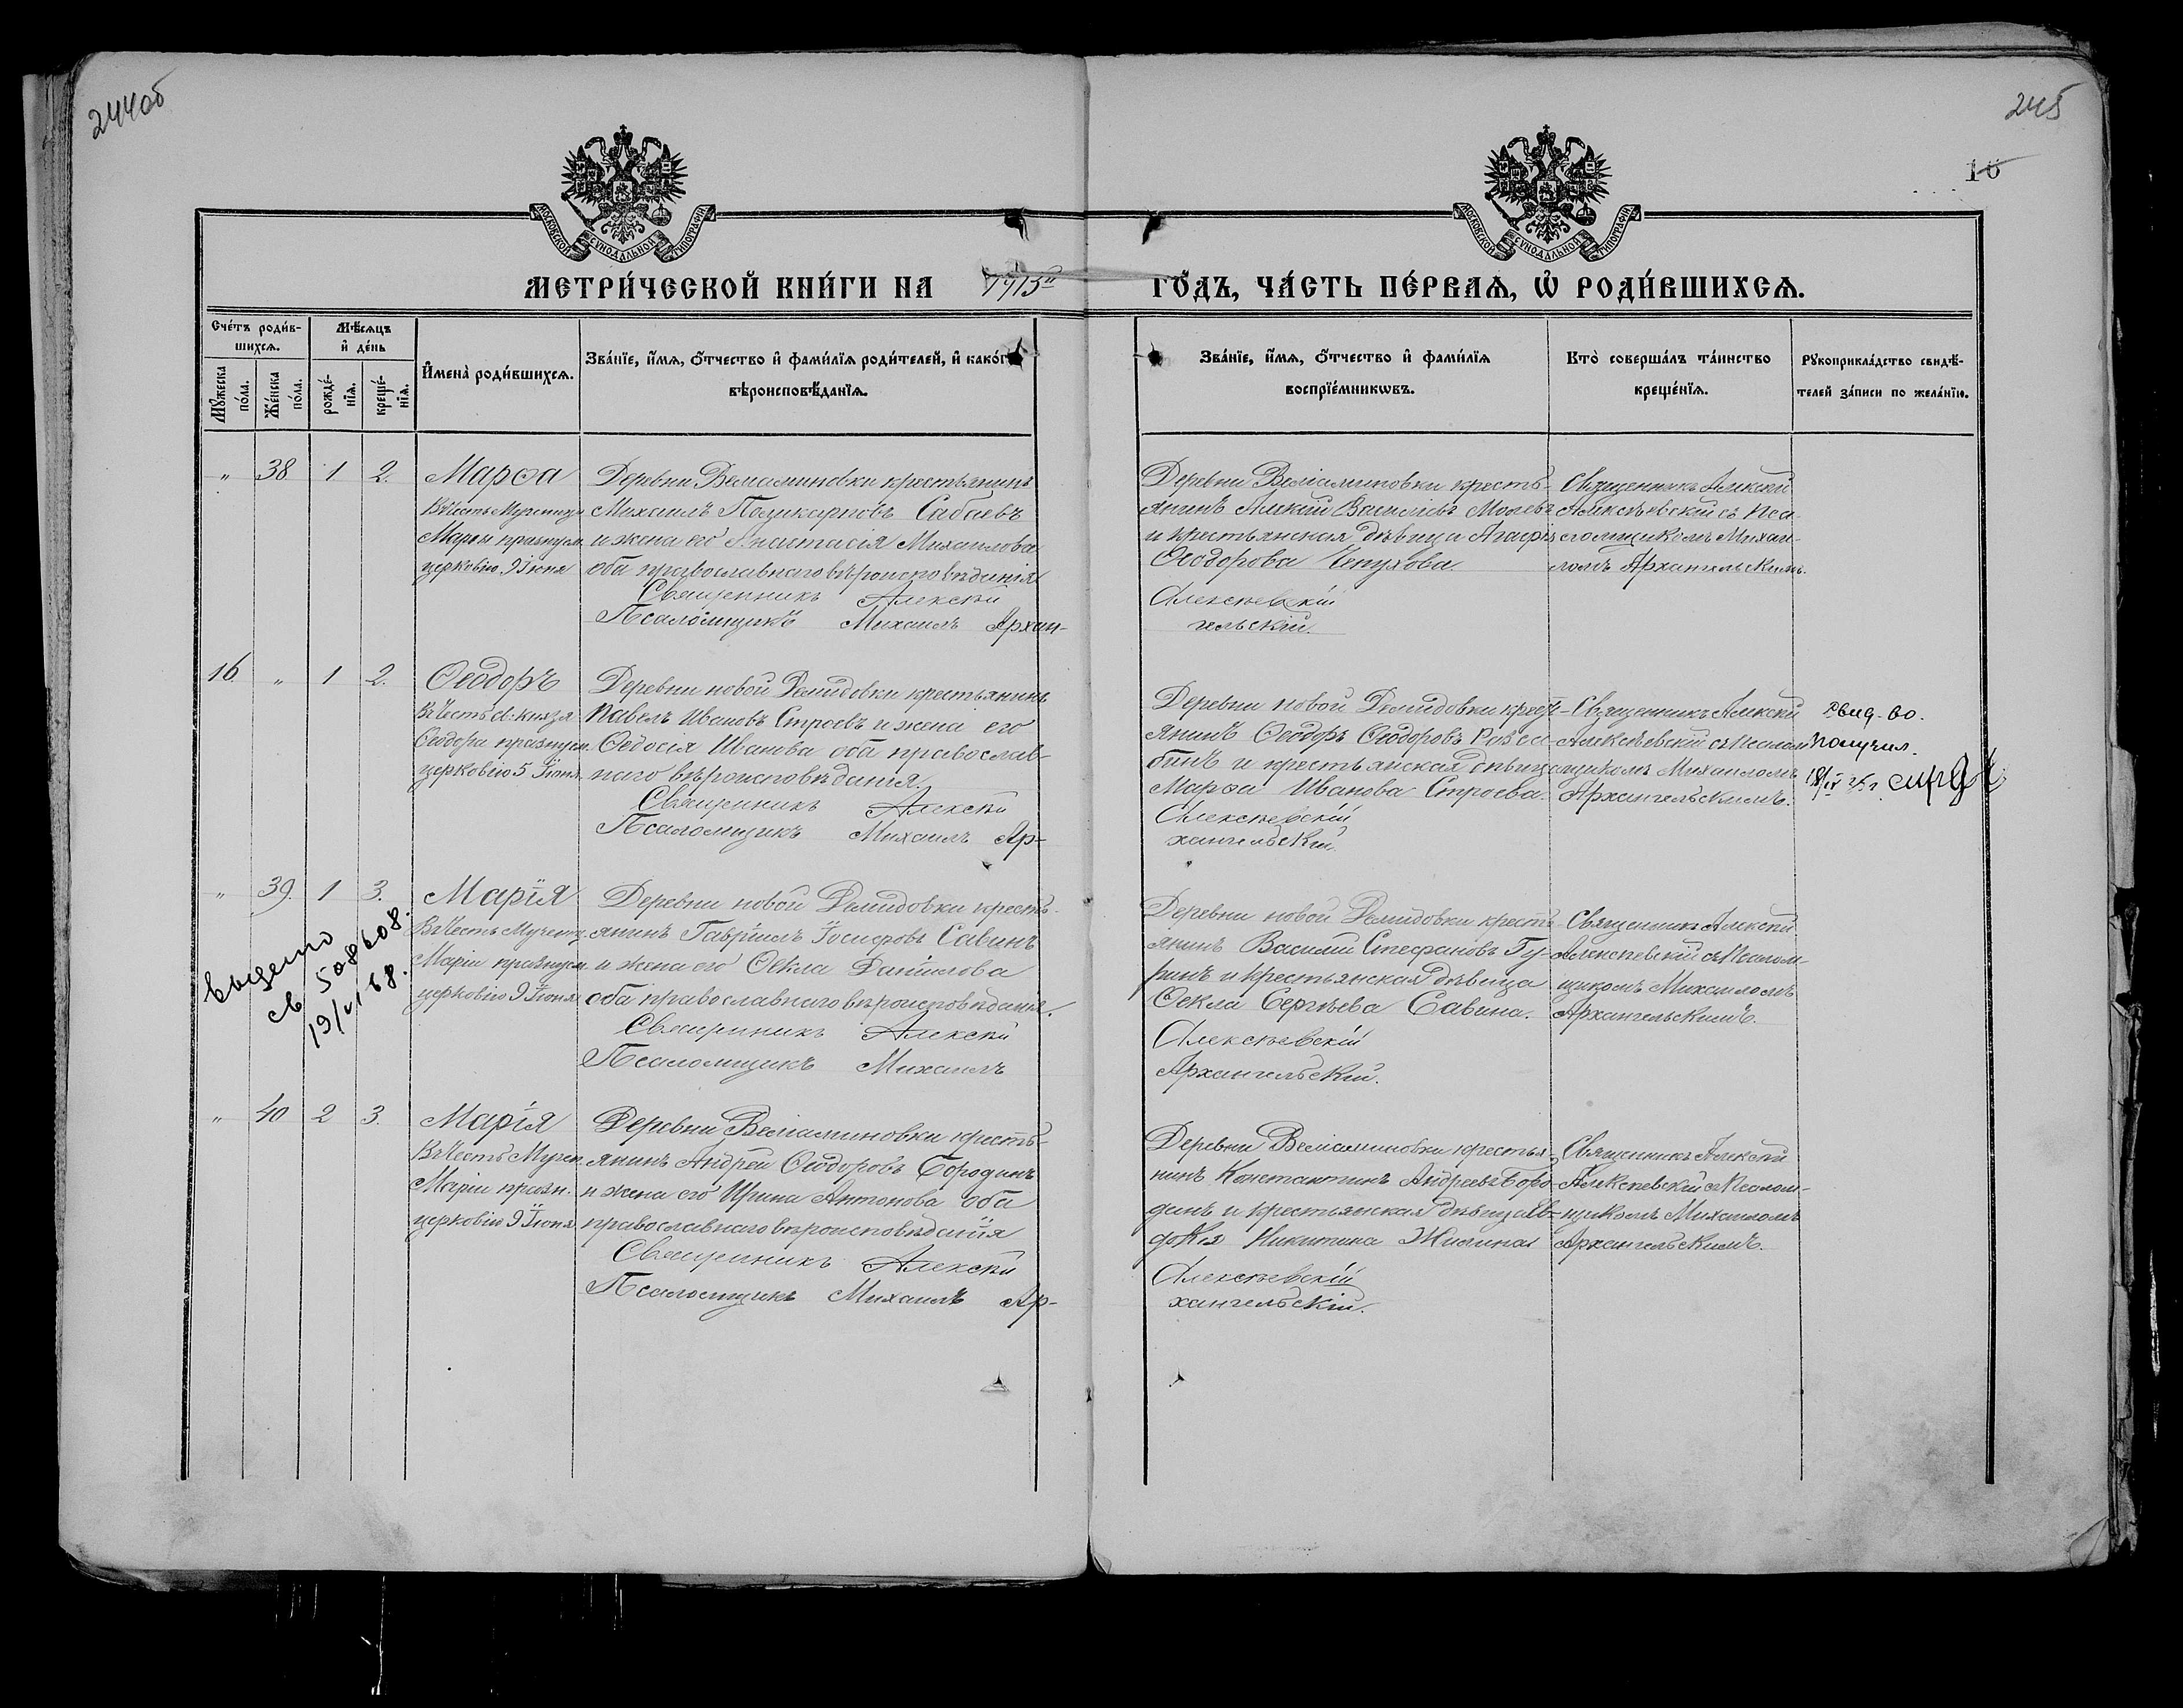 244об
245
10
МОСКОВСКОЙ СѴНОДАЛЬНОЙ ТИПОГРАФІИ
МОСКОВСКОЙ СѴНОДАЛЬНОЙ ТИПОГРАФІИ
МЕТРИ́ЧЕСКОЙ КНИ́ГИ НА 1915й ГО́ДЪ, ЧА́СТЬ ПЕ́РВАѦ, Ѡ҆ РОДИ́ВШИХСѦ.
Сче́тъ роди́в-
шихсѧ.
Мꙋ́жеска
по́ла.
Же́нска
по́ла.
Мѣ́сѧцъ
и҆ де́нь
рожде́-
нїѧ.
креще́-
нїѧ.
И҆мена̀ роди́вшихсѧ.
Зва́нїе, и҆́мѧ, ѻ҆́тчество и҆ фами́лїѧ роди́телей, и҆ како́гѡ
вѣроисповѣ́данїѧ.
Зва́нїе, и҆́мѧ, ѻ҆́тчество и҆ фами́лїѧ
воспрїе́мникѡвъ.
Кто̀ соверша́лъ та́инство
креще́нїѧ.
Рꙋкоприкла́дство свидѣ́-
телей за́писи по жела́нїю.
" 38 1 2.
Марѳа
Въ честь Мученицы
Марѳы празнуем.
церковію 9 Іюня
Деревни Веліаминовки крестьянинъ
Михаилъ Поликарповъ Сабаевъ
и жена его Анастасія Михаилова
оба православнаго вѣроисповѣданія
Священникъ Алексѣй
Псаломщикъ Михаилъ Архан-
Деревни Веліаминовки кресть-
янинъ Алексій Василіевъ
и крестьянская дѣвица Агафія
Ѳеодорова Чепухова.
Алексѣевскій
гельскій.
Священникъ Алексѣй
Алексѣевскій съ Пса-
ломщикомъ Михаи-
ломъ Архангельскимъ.
16 " 1 2.
Ѳеодоръ
Въ честь св. князя
Ѳеодора празнуем.
церковію 5 Іюня.
Деревни новой Демидовки крестьянинъ
Павелъ Ивановъ Строевъ и жена его
Ѳеодосія Иванова оба православ-
наго вѣроисповѣданія.
Священникъ Алексѣй
Псаломщикъ Михаилъ Ар-
Деревни новой Демидовки крест-
янинъ Ѳеодоръ Ѳеодоровъ
бинъ и крестьянская дѣвица
Марѳа Иванова Строева.
Алексѣевскій
хангельскій.
Священникъ Алексѣй
Алексѣевскій съ Псалом-
щикомъ Михаиломъ
Архангельскимъ.
Свид-во.
получил.
" 39. 1 3.
выдано
св 508608.
19/VI 68.
Марія
Въ честь Мучениц.
Маріи празнуем.
церковію 9 Іюня
Деревни новой Демидовки кресть-
янинъ Гавріилъ Іосифовъ Савинъ
и жена его Ѳекла Даниилова
оба православнаго вѣроисповѣданія.
Священникъ Алексѣй
Псаломщикъ Михаилъ
Деревни новой Демидовки кресть-
янинъ Василій Стефановъ Гу-
ринъ и крестьянская дѣвица
Ѳекла Сергѣева Савина.
Алексѣевскій
Архангельскій.
Священникъ Алексѣй
Алексѣевскій съ Псалом-
щикомъ Михаиломъ
Архангельскимъ.
" 40 2 3.
Марія
Въ честь Мучен.
Маріи празн.
церковію 9 Іюня
Деревни Веліаминовки кресть-
янинъ Андрей Ѳеодоровъ Бородинъ
и жена его Ирина Антонова оба
православнаго вѣроисповѣданія
Священникъ Алексѣй
Псаломщикъ Михаилъ Ар-
Деревни Веліаминовки крестья-
нинъ Константинъ Андреевъ Боро-
динъ и крестьянская дѣвица Ев-
докія Никитина Жилина
Алексѣевскій
хангельскій.
Священникъ Алексѣй
Алексѣевскій съ Псалом-
щикомъ Михаиломъ
Архангельскимъ.